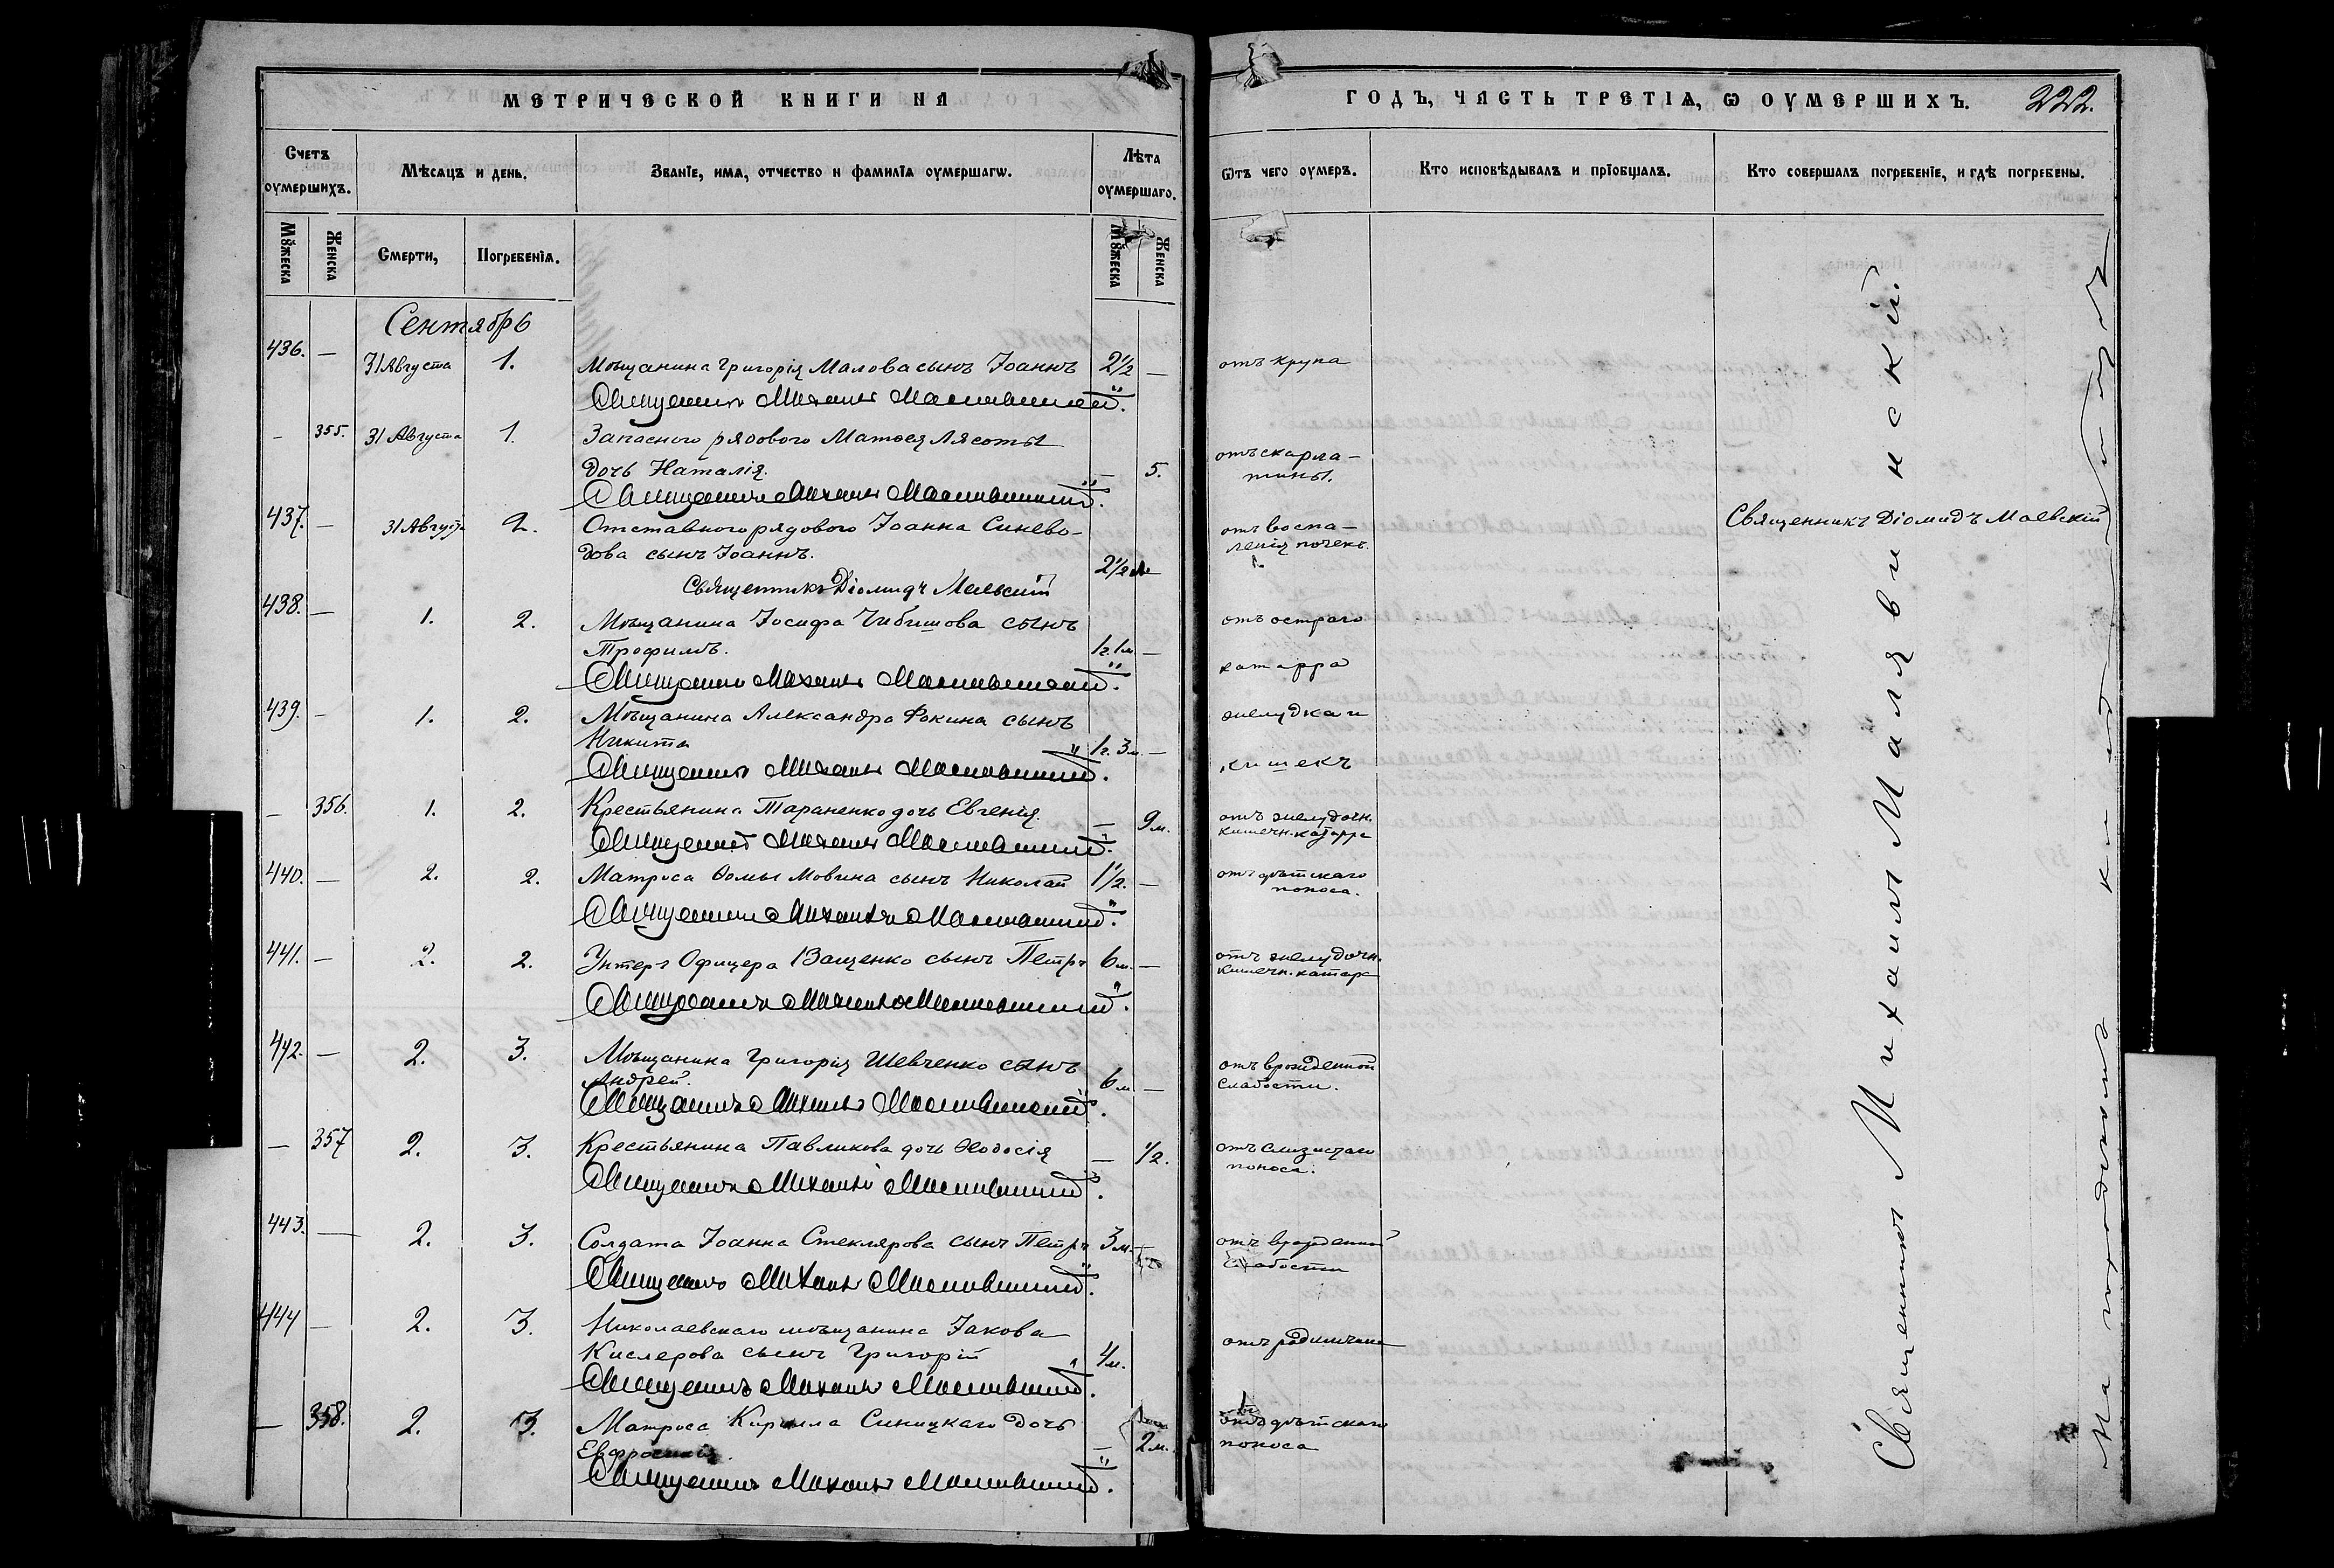 МЕТРИЧЕСКОЙ КНИГИ НА
ГОДЪ, ЧАСТЬ ТРЕТІѦ, Ѡ ОУМЕРШИХЪ. 222.
Счетъ оумершихъ.
Мѣсяцъ и день.
Званіе, имя, отчество и фамилія оумершагѡ.
Лѣта оумершаго.
Ѿтъ чего оумеръ.
Кто исповѣдывалъ и пріобщалъ.
Кто совершалъ погребеніе, и гдѣ погребены.
Мꙋжеска
Женска
Смерти,
Погребенія.
Мꙋжеска
Женска
Сентябрь
436. — 31 Августа 1. Мѣщанина Григорія Малова сынъ Іоаннъ 2½ — отъ крупа
Священникъ Михаилъ Малявинскій.
— 355. 31 Августа 1. Запаснаго рядового Матѳея Лясоты
дочь Наталія. — 5. отъ скарла-
тины.
Священникъ Михаилъ Малявинскій.
437. — 31 Августа 2. Отставного рядового Іоанна Синево-
дова сынъ Іоаннъ. 2½ м — отъ воспа-
ленія почекъ.
Священникъ Діомидъ Маевскій
Священникъ Діомидъ Маевскій
438. — 1. 2. Мѣщанина Іосифа Чибишова сынъ
Трофимъ. 1 г. 1 м — отъ остраго
катарра
Священникъ Михаилъ Малявинскій.
439. — 1. 2. Мѣщанина Александра Фокина сынъ
Никита 1 г. 3 м. — желудка и
кишекъ
Священникъ Михаилъ Малявинскій.
— 356. 1. 2. Крестьянина Тараненко дочь Евгенія. — 9 м. отъ желудочн.
кишечн. катарра
Священникъ Михаилъ Малявинскій.
440. — 2. 2. Матроса Ѳомы Мовина сынъ Николай 1½. — отъ дѣтскаго
поноса.
Священникъ Михаилъ Малявинскій.
441. — 2. 2. Унтеръ Офицера Ващенко сынъ Петръ 6 м. — отъ желудочн.
кишечн. катара
Священникъ Михаилъ Малявинскій.
442. — 2. 3. Мѣщанина Григорія Шевченко сынъ
Андрей. 6 м — отъ врожденной
слабости.
Священникъ Михаилъ Малявинскій.
— 357 2. 3. Крестьянина Павликова дочь Ѳеодосія — ½. отъ слизистаго
поноса.
Священникъ Михаилъ Малявинскій.
443. — 2. 3. Солдата Іоанна Стеклярова сынъ Петръ 3 м. — отъ врожденной
слабости
Священникъ Михаилъ Малявинскій.
444 — 2. 3. Николаевскаго мѣщанина Іакова
Кислерова сынъ Григорій 4 м. отъ родимчика
Священникъ Михаилъ Малявинскій.
— 358. 2. 3. Матроса Кирилла Синицкаго дочь
Евфросинія. — 2 м. отъ дѣтскаго
поноса
Священникъ Михаилъ Малявинскій.
Священникъ Михаилъ Малявинскій.
На городскомъ